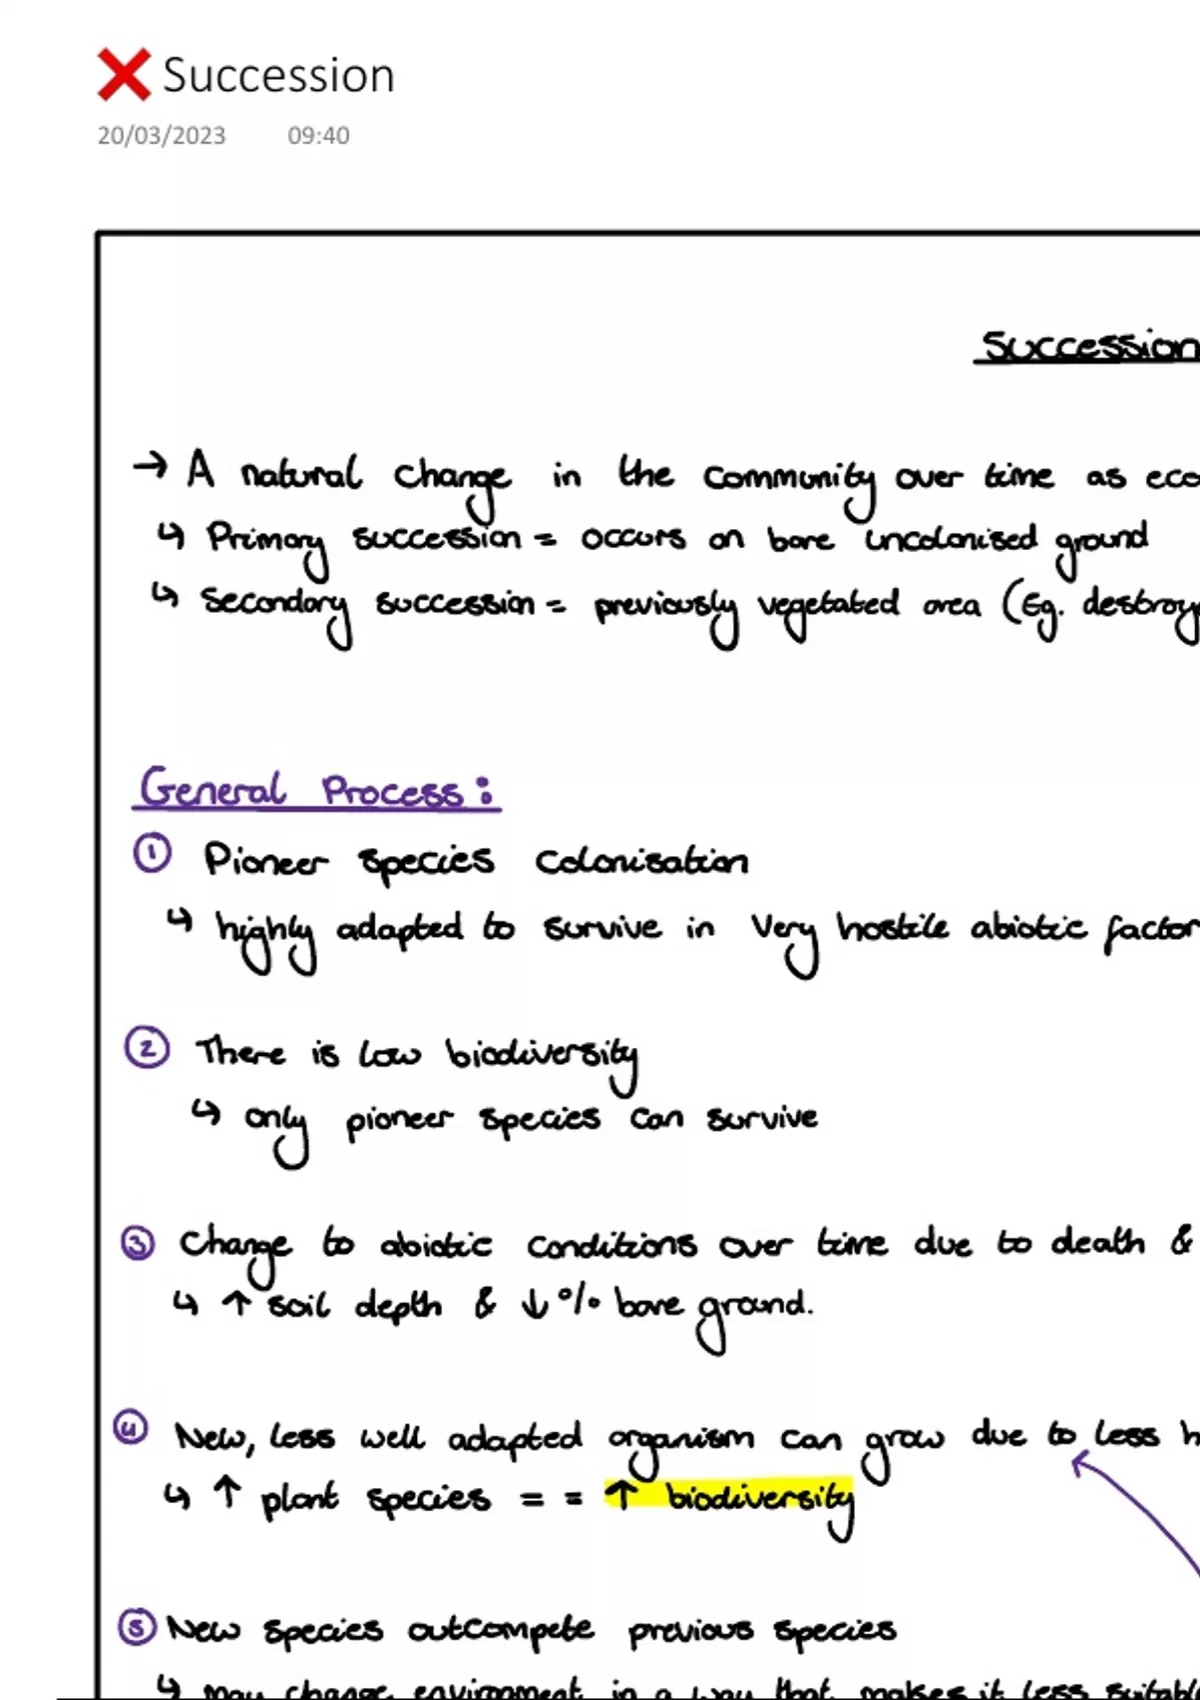 ❌ Succession
20/03/2023 09:40
Succession
→ A natural change in the community over time as eco
↳ Primary succession = occurs on bare uncolonised ground
↳ Secondary succession = previously vegetated area (Eg. destroy
General Process:
① Pioneer species colonisation
↳ highly adapted to survive in very hostile abiotic factor
② There is low biodiversity
↳ only pioneer species can survive
③ Change to abiotic conditions over time due to death &
↳ ↑ soil depth & ↓ % bare ground.
④ New, less well adapted organism can grow due to less h
↳ ↑ plant species = = ↑ biodiversity
⑤ New species outcompete previous species
↳ may change environment in a way that makes it less suitabl